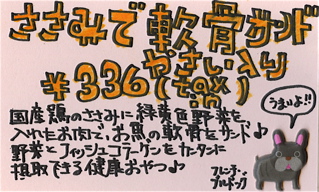 ささみで軟骨サンド
やさい入り
¥336(税込)
国産鶏のささみに緑黄色野菜を
入れたお肉で、お魚の軟骨をサンド♪
野菜とフィッシュコラーゲンをカンタンに
摂取できる健康おやつ♪
うまいよ!!
フレンチ・
ブルドッグ